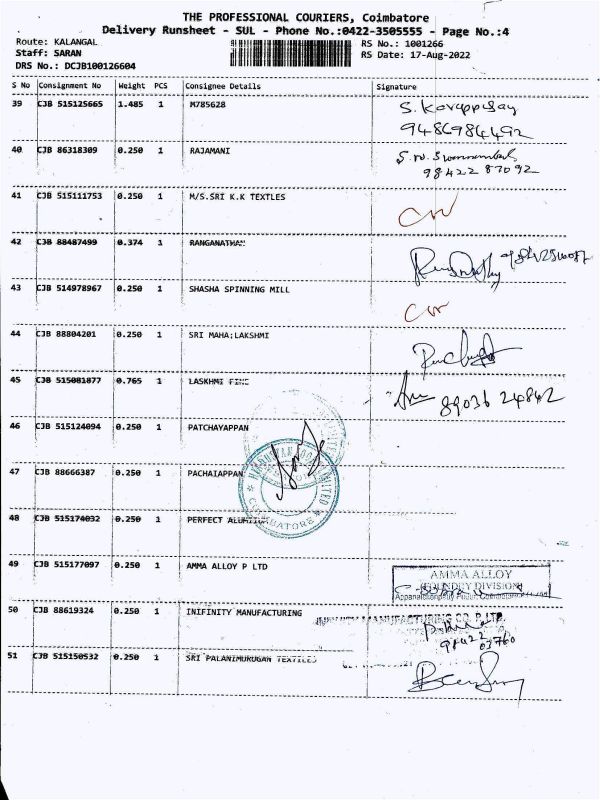 THE PROFESSIONAL COURIERS, Coimbatore
Delivery Runsheet - SUL - Phone No.:0422-3505555 - Page No.:4
Route: KALANGAL RS No.: 1001266
Staff: SARAN RS Date: 17-Aug-2022
DRS No.: DCJB100126604
S No Consignment No Weight PCS Consignee Details Signature
39 CJB 515125665 1.485 1 M785628
9486984492
40 CJB 86318309 0.250 1 RAJAMANI
98422 87092
41 CJB 515111753 0.250 1 M/S.SRI K.K TEXTLES
42 CJB 88487499 0.374 1 RANGANATHAN
43 CJB 514978967 0.250 1 SHASHA SPINNING MILL
44 CJB 88804201 0.250 1 SRI MAHA;LAKSHMI
45 CJB 515081877 0.765 1 LASKHMI FINE
89036 24842
46 CJB 515124094 0.250 1 PATCHAYAPPAN
47 CJB 88666387 0.250 1 PACHAIAPPAN
COIMBATORE
48 CJB 515174032 0.250 1 PERFECT
49 CJB 515177097 0.250 1 AMMA ALLOY P LTD
AMMA ALLOY
(FOUNDRY DIVISION)
50 CJB 88619324 0.250 1 INIFINITY MANUFACTURING
MANUFACTURING CO. P. LTD.
98422
03760
51 CJB 515150532 0.250 1 SRI PALANIMURUGAN TEXTILES